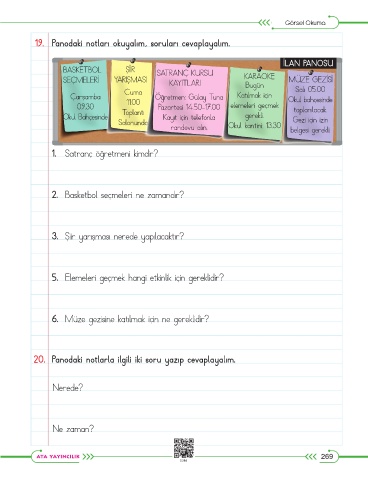 Görsel Okuma
19. Panodaki notları okuyalım, soruları cevaplayalım.
İLAN PANOSU
BASKETBOL
SEÇMELERİ
Çarşamba
09.30
Okul Bahçesinde
ŞİİR
YARIŞMASI
Cuma
11.00
Toplantı
Salonunda
SATRANÇ KURSU
KAYITLARI
Öğretmen: Gülay Tuna
Pazartesi 14.50-17.00
Kayıt için telefonla
randevu alın.
KARAOKE
Bugün
Katılmak için
elemeleri geçmek
gerekli.
Okul kantini 13.30
MÜZE GEZİSİ
Salı 05.00
Okul bahçesinde
toplanılacak.
Gezi için izin
belgesi gerekli.
1. Satranç öğretmeni kimdir?
2. Basketbol seçmeleri ne zamandır?
3. Şiir yarışması nerede yapılacaktır?
5. Elemeleri geçmek hangi etkinlik için gereklidir?
6. Müze gezisine katılmak için ne gereklidir?
20. Panodaki notlarla ilgili iki soru yazıp cevaplayalım.
Nerede?
Ne zaman?
ATA YAYINCILIK
269